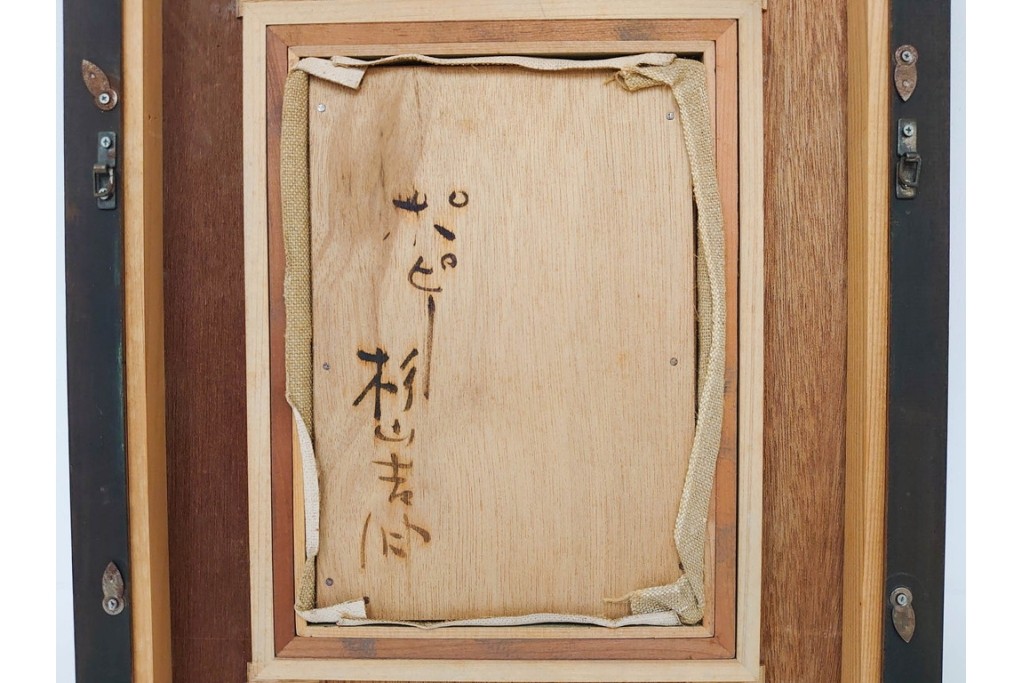 ポピー
杉山吉伸